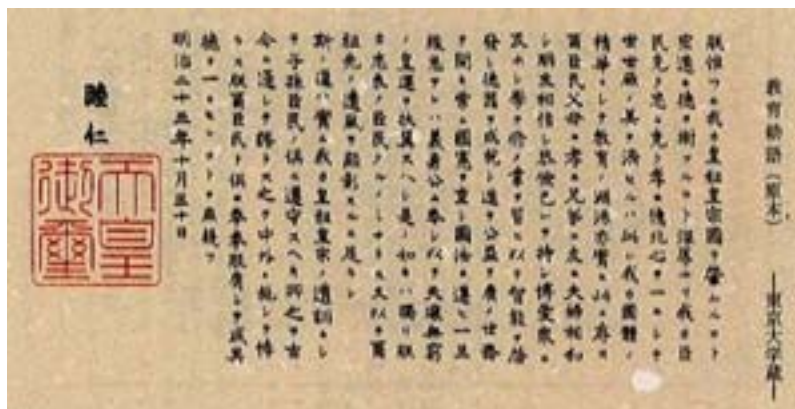 教育勅語（原本）　—東京大学蔵—
朕惟フニ我カ皇祖皇宗國ヲ肇ムルコト
宏遠ニ德ヲ樹ツルコト深厚ナリ我カ臣
民克ク忠ニ克ク孝ニ億兆心ヲ一ニシテ
世世厥ノ美ヲ濟セルハ此レ我カ國體ノ
精華ニシテ教育ノ淵源亦實ニ此ニ存ス
爾臣民父母ニ孝ニ兄弟ニ友ニ夫婦相和
シ朋友相信シ恭儉己レヲ持シ博愛衆ニ
及ホシ學ヲ修メ業ヲ習ヒ以テ智能ヲ啓
發シ德器ヲ成就シ進テ公益ヲ廣メ世務
ヲ開キ常ニ國憲ヲ重シ國法ニ遵ヒ一旦
緩急アレハ義勇公ニ奉シ以テ天壤無窮
ノ皇運ヲ扶翼スヘシ是ノ如キハ獨リ朕
カ忠良ノ臣民タルノミナラス又以テ爾
祖先ノ遺風ヲ顯彰スルニ足ラン
斯ノ道ハ實ニ我カ皇祖皇宗ノ遺訓ニシ
テ子孫臣民ノ俱ニ遵守スヘキ所之ヲ古
今ニ通シテ謬ラス之ヲ中外ニ施シテ悖
ラス朕爾臣民ト俱ニ拳拳服膺シテ咸其
德ヲ一ニセンコトヲ庶幾フ
明治二十三年十月三十日
睦仁
天皇
御璽